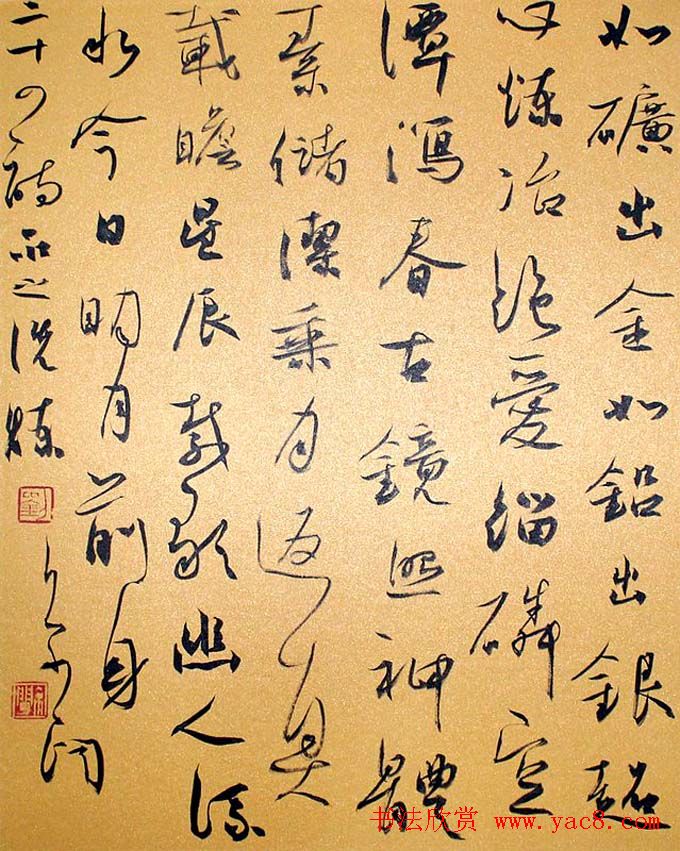 如礦出金如鉛出銀超
心煉冶絕愛緇磷空
潭瀉春古鏡照神體
素儲潔乘月返真
載瞻星辰載歌幽人流
水今日明月前身
二十四詩品之洗煉
劉
书法欣赏 www.yac8.com